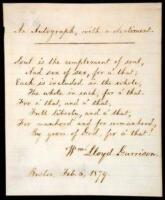 An Autograph, with a sentiment.
Soul is the complement of soul,
And sex of sex, for a' that;
Each is included in the whole,
The whole in each, for a' that.
For a' that, and a' that,
Full liberty, and a' that,
For manhood and for womanhood,
By grace of God, for a' that!
Wm. Lloyd Garrison.
Boston, Feb. 6, 1879.